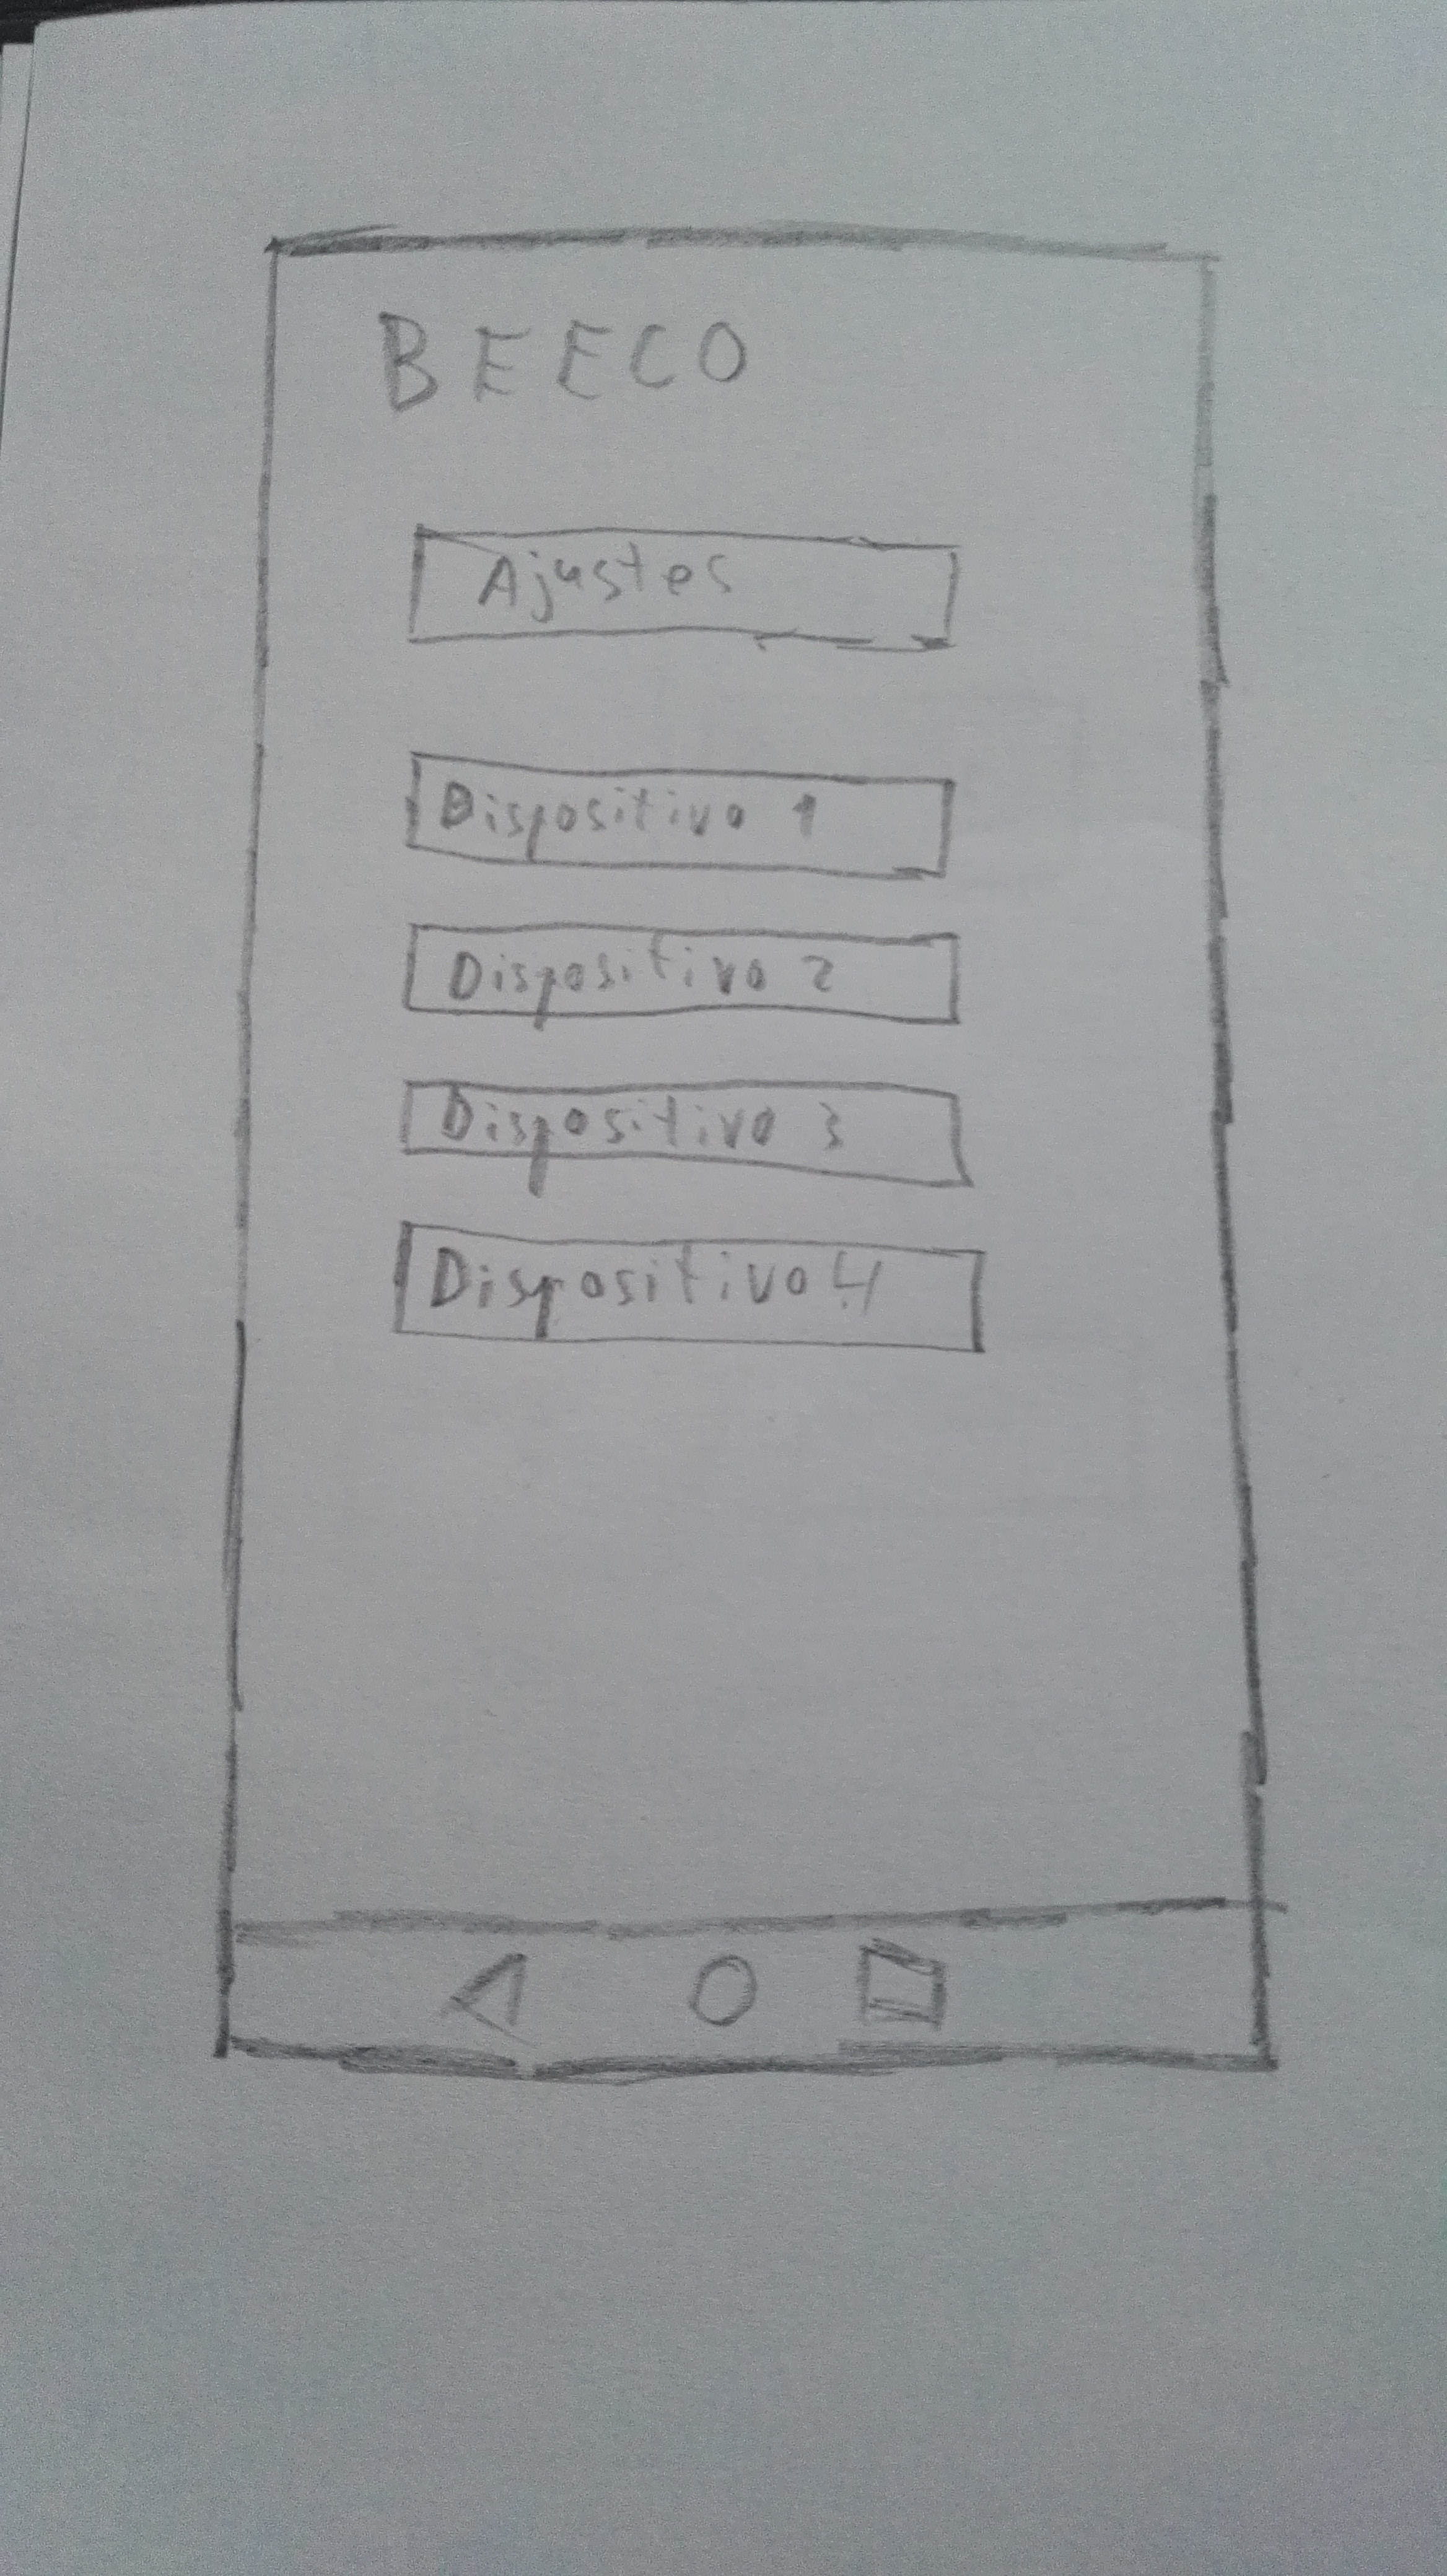 BEECO
Ajustes
Dispositivo 1
Dispositivo 2
Dispositivo 3
Dispositivo 4